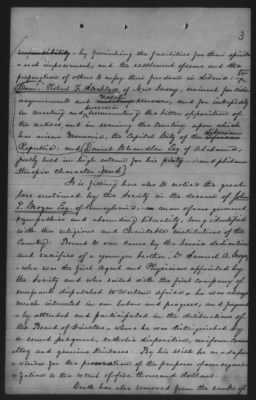 3
responsibility - by furnishing the facilities for their spirit-
ual improvement, and the settlement of some and the
preparation of others to enjoy their freedom in Liberia:
Com. Robert F. Stockton of New Jersey, eminent for civic
acquirements and naval renown, and for intrepidity
in meeting and overcoming the bitter opposition of
the natives and in securing the Country upon which
has arisen Monrovia, the Capital City of the Liberian
Republic: and Daniel Chandler Esq of Alabama,
justly held in high esteem for his piety and philan-
thropic character,
It is fitting here also to notice the great
loss sustained by the Society in the decease of John
P. Crozer Esq of Pennsylvania, a man of
sympathies and abounding liberality, long identified
with the religious and charitable institutions of the
Country. Bound to our cause by the heroic dedication
and sacrifice of a younger brother, Dr Samuel A. Crozer
- who was the first Agent and Physician appointed by
the Society and who sailed with the first company of
emigrants dispatched to Western Africa - he was always
much interested in our labors and progress, and frequent-
ly attended and participated in the deliberations of
the Board of Directors - where he was distinguished by
a sound judgment, catholic disposition, uniform cour-
tesy and genuine kindness. By his will he made pro-
vision for the of the purposes of our organi-
zation to the extent of five thousand dollars.
Death has also removed from the ranks of